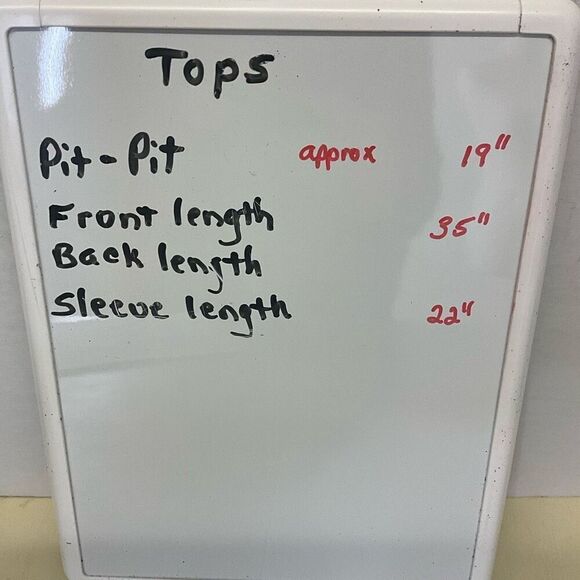 Tops
Pit - Pit approx 19"
Front length 35"
Back length
Sleeve length 22"